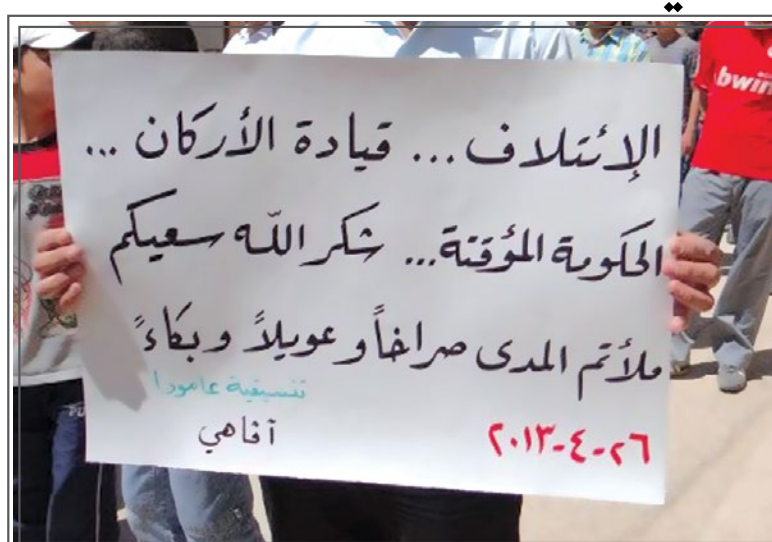 الإئتلاف... قيادة الأركان...
الحكومة المؤقتة... شكر الله سعيكم
ملأتم المدى صراخاً و عويلاً و بكاءً
تنسيقية عامودا
آفاهي
٢٦-٤-٢٠١٣
bwin